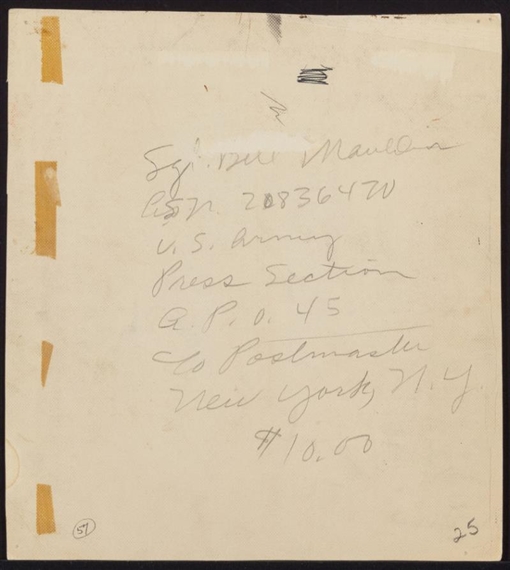 Sgt. Bill Mauldin
ASN 20836470
U.S. Army
Press Section
A.P.O. 45
c/o Postmaster
New York, N.Y.
$10.00
57
25